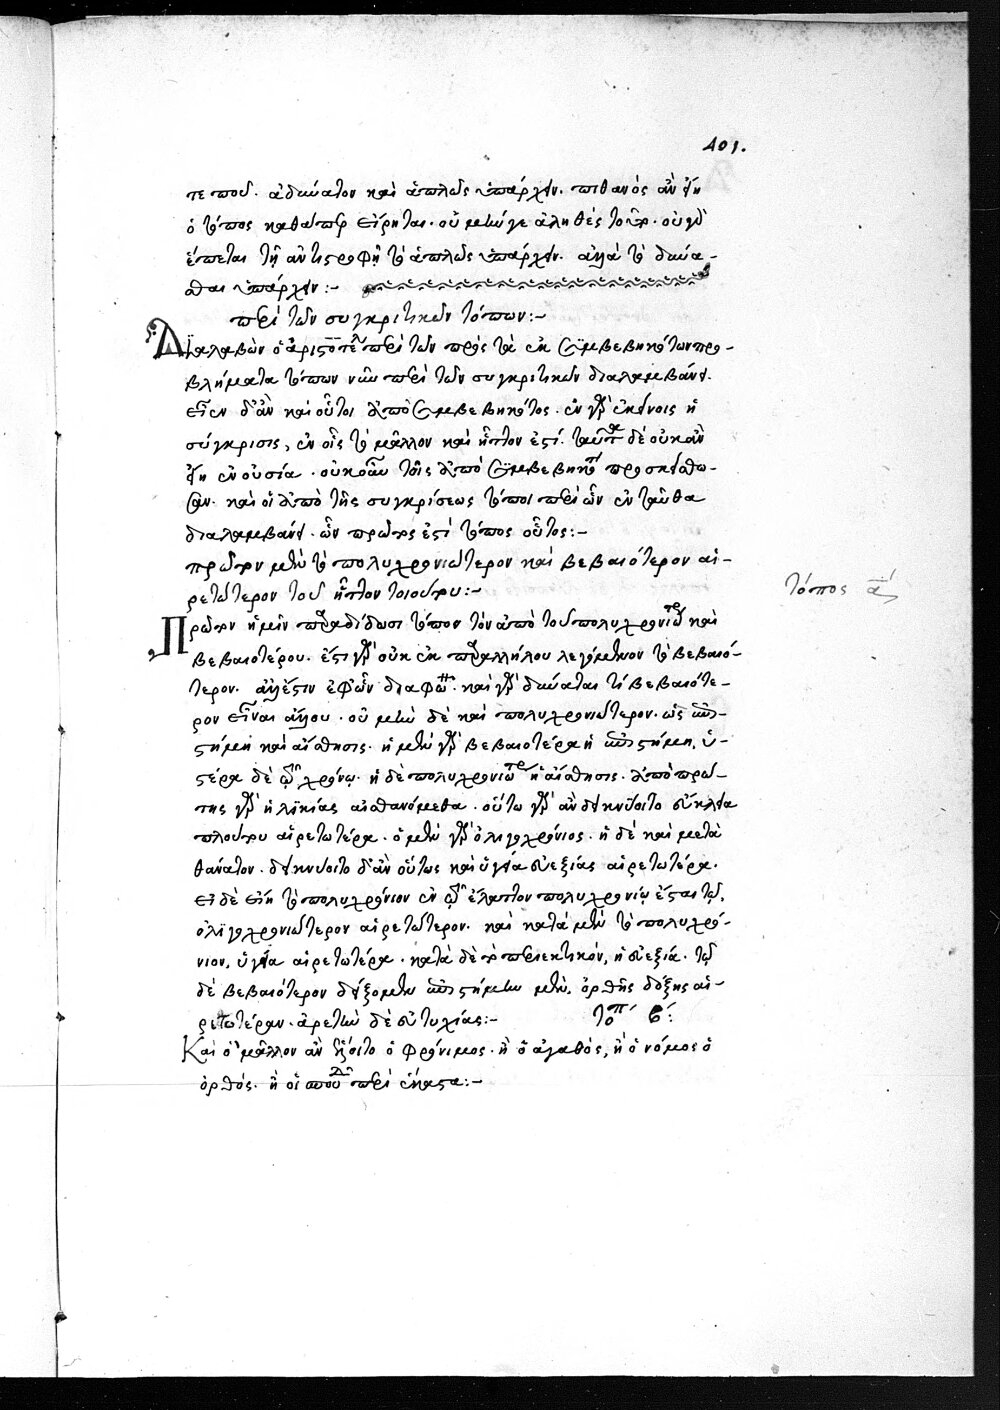 401.
τε ποῦ. ἀδύνατον καὶ ἁπλῶς ὑπάρχειν. πιθανὸς ἂν εἴη
ὁ τόπος καθάπερ εἴρηται. οὐ μήν γε ἀληθές τοῦτο. οὐ γὰρ
ἕπεται τῇ ἀντιστροφῇ τὸ ἁπλῶς ὑπάρχειν. ἀλλὰ τὸ δύνα-
σθαι ὑπάρχειν:-
περὶ τῶν συγκριτικῶν τόπων:-
Διαλαβὼν ὁ ἀριστοτέλης περὶ τῶν πρὸς τὰ ἐκ συμβεβηκότων προ-
βλήματα τόπων νῦν περὶ τῶν συγκριτικῶν διαλαμβάνει.
εἶεν δ' ἂν καὶ οὗτοι ἀπὸ συμβεβηκότος. ἐν γὰρ ἐκείνοις ἡ
σύγκρισις, ἐν οἷς τὸ μᾶλλον καὶ ἧττον ἐστί. ταῦτα δὲ οὐκ ἂν
εἴη ἐν οὐσία. οὐκοῦν τοῖς ἀπὸ συμβεβηκότος προσκείσθω-
σαν. καὶ οἱ ἀπὸ τῆς συγκρίσεως τόποι περὶ ὧν ἐνταῦθα
διαλαμβάνει. ὧν πρῶτος ἐστὶ τόπος οὗτος:-
πρῶτον μὲν τὸ πολυχρονιώτερον καὶ βεβαιότερον αἱ-
ρετώτερον τοῦ ἧττον τοιούτου:-
τόπος α΄
Πρῶτον ἡμῖν παραδίδωσι τόπον τὸν ἀπὸ τοῦ πολυχρονιωτέρου καὶ
βεβαιοτέρου. ἔστι γὰρ οὐκ ἐκ παραλλήλου λεγόμενον τὸ βεβαιό-
τερον. ἀλλ' ἔστιν ἐφ' ὧν διαφωνεῖ. καὶ γὰρ δύναται τί βεβαιότε-
ρον εἶναι ἄλλου. οὐ μὴν δὲ καὶ πολυχρονιώτερον. ὡς ἐπι-
στήμη καὶ αἴσθησις. ἡ μὲν γὰρ βεβαιοτέρα ἡ ἐπιστήμη, ὑ-
στέρα δὲ τῷ χρόνῳ. ἡ δὲ πολυχρονιωτέρα ἡ αἴσθησις. ἀπὸ πρώ-
της γὰρ ἡλικίας αἰσθανόμεθα. οὕτω γὰρ ἂν δεικνύοιτο εὔκλεια
πλούτου αἱρετωτέρα. ὁ μὲν γὰρ ὀλιγοχρόνιος. ἡ δὲ καὶ μετὰ
θάνατον. δεικνύοιτο δ' ἂν οὕτως καὶ ὑγεία εὐεξίας αἱρετωτέρα.
εἰ δὲ εἴη τὸ πολυχρόνιον ἐν τῷ ἔλαττον πολυχρονίῳ ἔσται τῷ,
ὀλιγοχρονιώτερον αἱρετώτερον. καὶ κατὰ μὲν τὸ πολυχρό-
νιον, ὑγεία αἱρετωτέρα. κατὰ δὲ τὸ περιεκτικόν, ἡ εὐεξία. τῷ
δὲ βεβαιότερον δείξομεν ἐπιστήμην μὲν, ὀρθῆς δόξης αἱ-
ρετωτέραν. ἀρετὴν δὲ εὐτυχίας:-
τόπος β΄:
Καὶ ὃ μᾶλλον ἂν ἕλοιτο ὁ φρόνιμος. ἢ ὁ ἀγαθὸς, ἢ ὁ νόμος ὁ
ὀρθός. ἢ οἱ σπουδαῖοι περὶ ἕκαστα:-